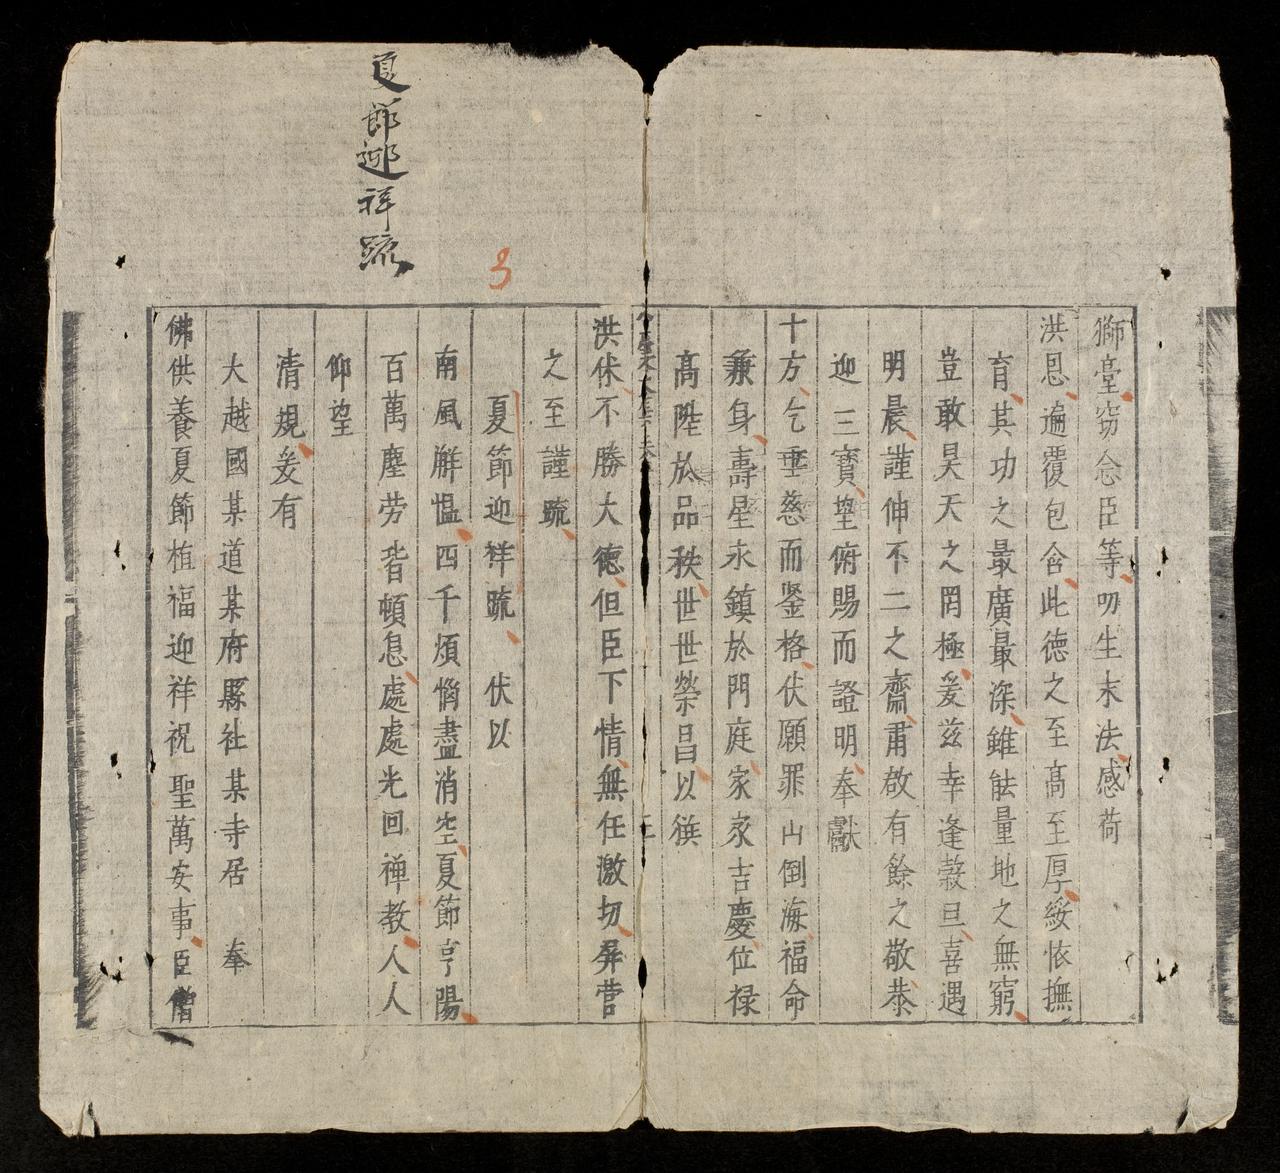 夏節迎祥疏
獅臺窃念臣等叨生末法感荷
洪恩遍覆包含此德之至髙至厚綏懷撫
育其功之最廣最深雖能量地之無窮
豈敢昊天之罔極爰兹幸逢穀旦喜遇
明晨謹伸不二之齋肅啟有餘之敬恭
迎三寳望俯賜而證明奉獻
十方乞垂慈而鑒格伏願罪山倒海福命
兼身壽星永鎮於門庭家家吉慶位禄
髙陞於品秩世世榮昌以
洪休不勝大德但臣下情無任激切屏营
之至謹疏
夏節迎祥疏 伏以
南風解愠四千煩惱盡消空夏節亨陽
百萬塵劳皆頓息處處光回禅教人人
仰望
清規爰有
大越國某道某府縣社某寺居 奉
佛供養夏節植福迎祥祝聖萬安事臣僧